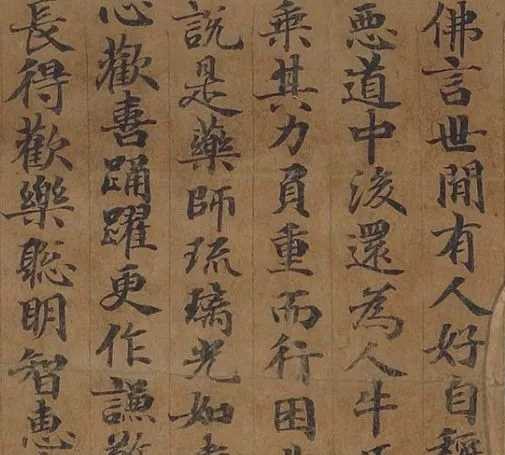 佛言世間有人好自稱
惡道中後還為人牛馬
乘其力負重而行困
說是藥師琉璃光如
心歡喜踊躍更作謙敬
長得歡樂聰明智惠